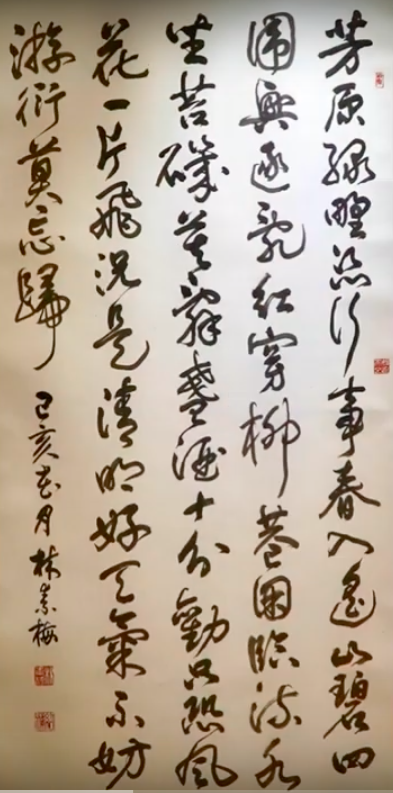 芳原綠野恣行事春入遙山碧四
圍興逐亂紅穿柳巷困臨流水
坐苔磯莫辭盞酒十分勸只恐風
花一片飛況是清明好天氣不妨
游衍莫忘歸
己亥春月林素梅